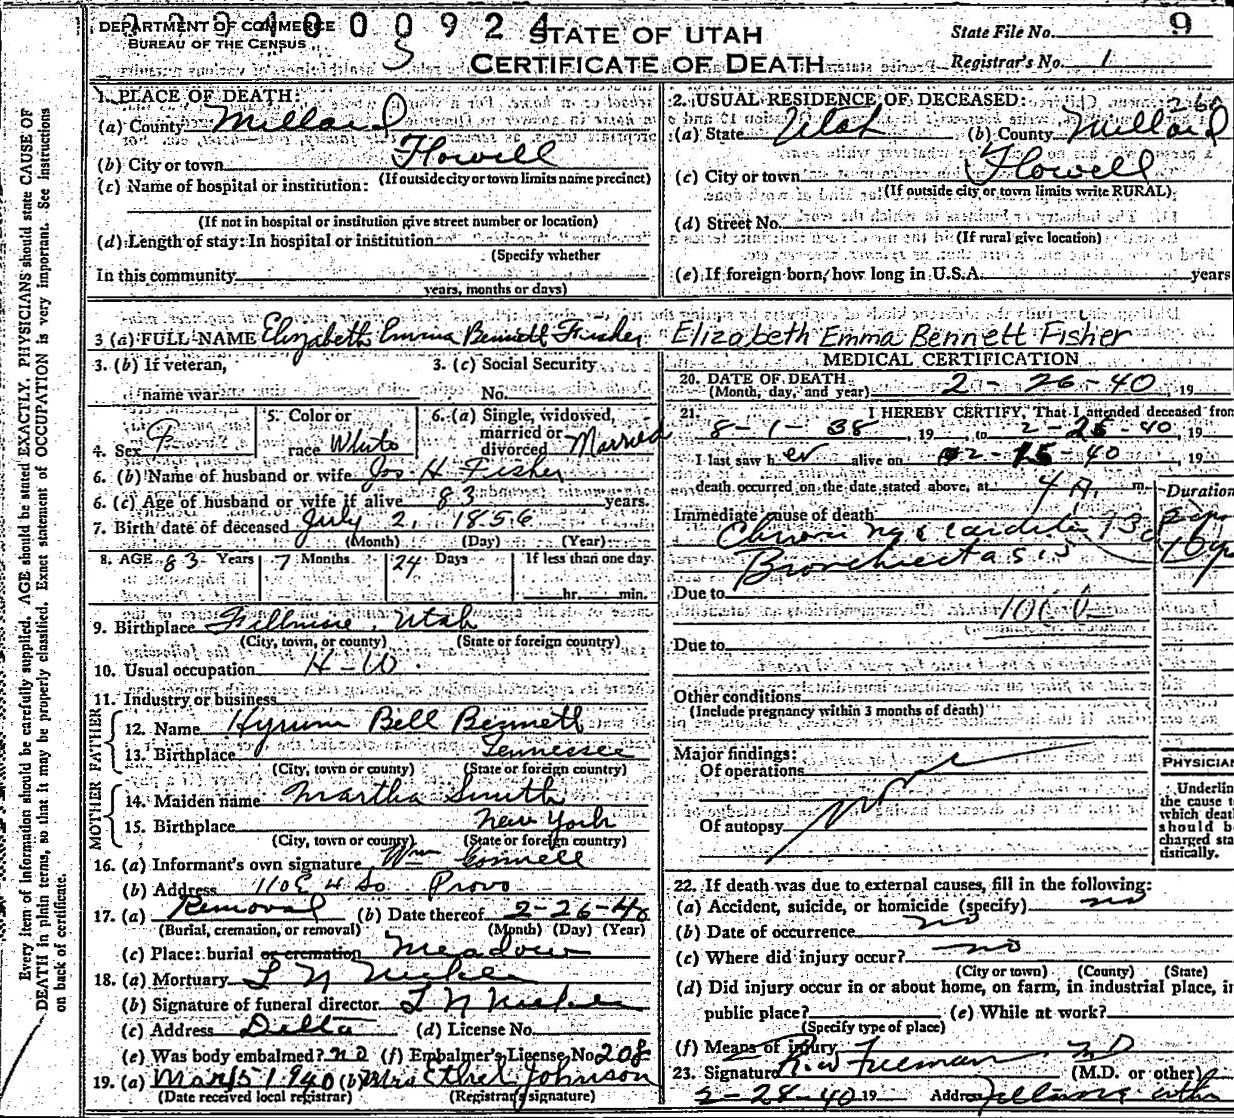 DEPARTMENT OF COMMERCE
BUREAU OF THE CENSUS
STATE OF UTAH
CERTIFICATE OF DEATH
State File No. 9
Registrar's No. 1
Every item of information should be carefully supplied. AGE should be stated EXACTLY. PHYSICIANS should state CAUSE OF
DEATH in plain terms, so that it may be properly classified. Exact statement of OCCUPATION is very important. See instructions
on back of certificate.
1. PLACE OF DEATH:
(a) County Millard
(b) City or town Flowell
(If outside city or town limits name precinct)
(c) Name of hospital or institution:
(If not in hospital or institution give street number or location)
(d) Length of stay: In hospital or institution
(Specify whether
In this community
years, months or days)
2. USUAL RESIDENCE OF DECEASED: 260
(a) State Utah (b) County Millard
(c) City or town Flowell
(If outside city or town limits write RURAL)
(d) Street No.
(If rural give location)
(e) If foreign born, how long in U.S.A. years
3 (a) FULL NAME Elizabeth Emma Bennett Fisher Elizabeth Emma Bennett Fisher
3. (b) If veteran, name war
3. (c) Social Security No.
4. Sex F
5. Color or race White
6. (a) Single, widowed, married or divorced Married
6. (b) Name of husband or wife Jos H Fisher
6. (c) Age of husband or wife if alive 83 years.
7. Birth date of deceased July 2, 1856
(Month) (Day) (Year)
8. AGE 83 Years 7 Months 24 Days If less than one day
hr. min.
9. Birthplace Fillmore, Utah
(City, town, or county) (State or foreign country)
10. Usual occupation H-W.
11. Industry or business
FATHER
12. Name Hyrum Bell Bennett
13. Birthplace Tennessee
(City, town or county) (State or foreign country)
MOTHER
14. Maiden name Martha Smith
15. Birthplace New York
(City, town or county) (State or foreign country)
16. (a) Informant's own signature Wm Connell
(b) Address 110 E 4 So. Provo
17. (a) Removal (b) Date thereof 2-26-40
(Burial, cremation, or removal) (Month) (Day) (Year)
(c) Place: burial or cremation Meadow
18. (a) Mortuary L N
(b) Signature of funeral director L N
(c) Address Delta (d) License No.
(e) Was body embalmed? no (f) Embalmer's License No. 208
19. (a) Mar 5 1940 (b) Mrs Ethel Johnson
(Date received local registrar) (Registrar's signature)
MEDICAL CERTIFICATION
20. DATE OF DEATH 2-26-40, 19
(Month, day, and year)
21. I HEREBY CERTIFY, That I attended deceased from
8-1-38, 19, to 2-25-40, 19
I last saw her alive on 2-15-40, 19
death occurred on the date stated above, at 4 A. m.
Duration
Immediate cause of death
Chronic myocarditis
Bronchiectasis
Due to
Due to
Other conditions
(Include pregnancy within 3 months of death)
Major findings:
Of operations
Of autopsy
PHYSICIAN
Underlin
the cause t
which deat
should b
charged sta
tistically.
22. If death was due to external causes, fill in the following:
(a) Accident, suicide, or homicide (specify) no
(b) Date of occurrence no
(c) Where did injury occur? no
(City or town) (County) (State)
(d) Did injury occur in or about home, on farm, in industrial place, in
public place? (e) While at work?
(Specify type of place)
(f) Means of injury
23. Signature Freeman MD (M.D. or other)
2-28-40 19 Address Fillmore Utah